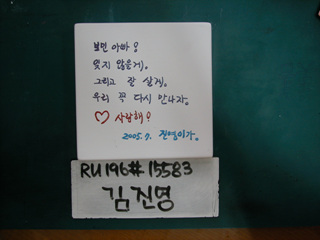 보민 아빠!
잊지 않을게。
그리고 잘 살게。
우리 꼭 다시 만나자。
♡ 사랑해!
2005. 9. 진영이가。
RU196#15583
김진영